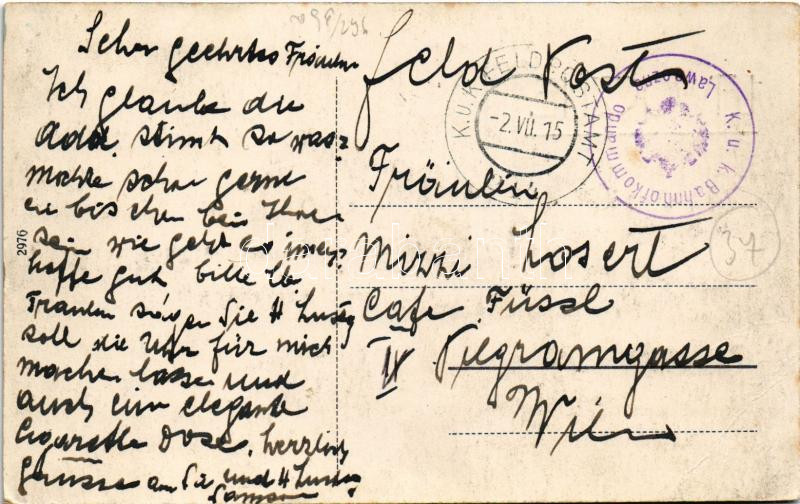 Sehr geehrtes Fräulein
Ich glaube die
add. stimt so was?
möchte schon gerne
ein bischen bein Ihnen
sein wie geht es immer?
hoffe gut bitte lb.
Fräulein sagen Sie H
soll die Uhr für mich
machen lassen und
auch eine elegante
Cigarette dose, herzlich
grüsse an Sie und H
Feld Post
Fräulein
Mizzi Losert
Cafe Füssl
IV Pilgramgasse
Wien
K.u.K. FELDPOSTAMT
-2.VII.15
K. u. k. Bahnhofkommando
Lawoczne
2976
37